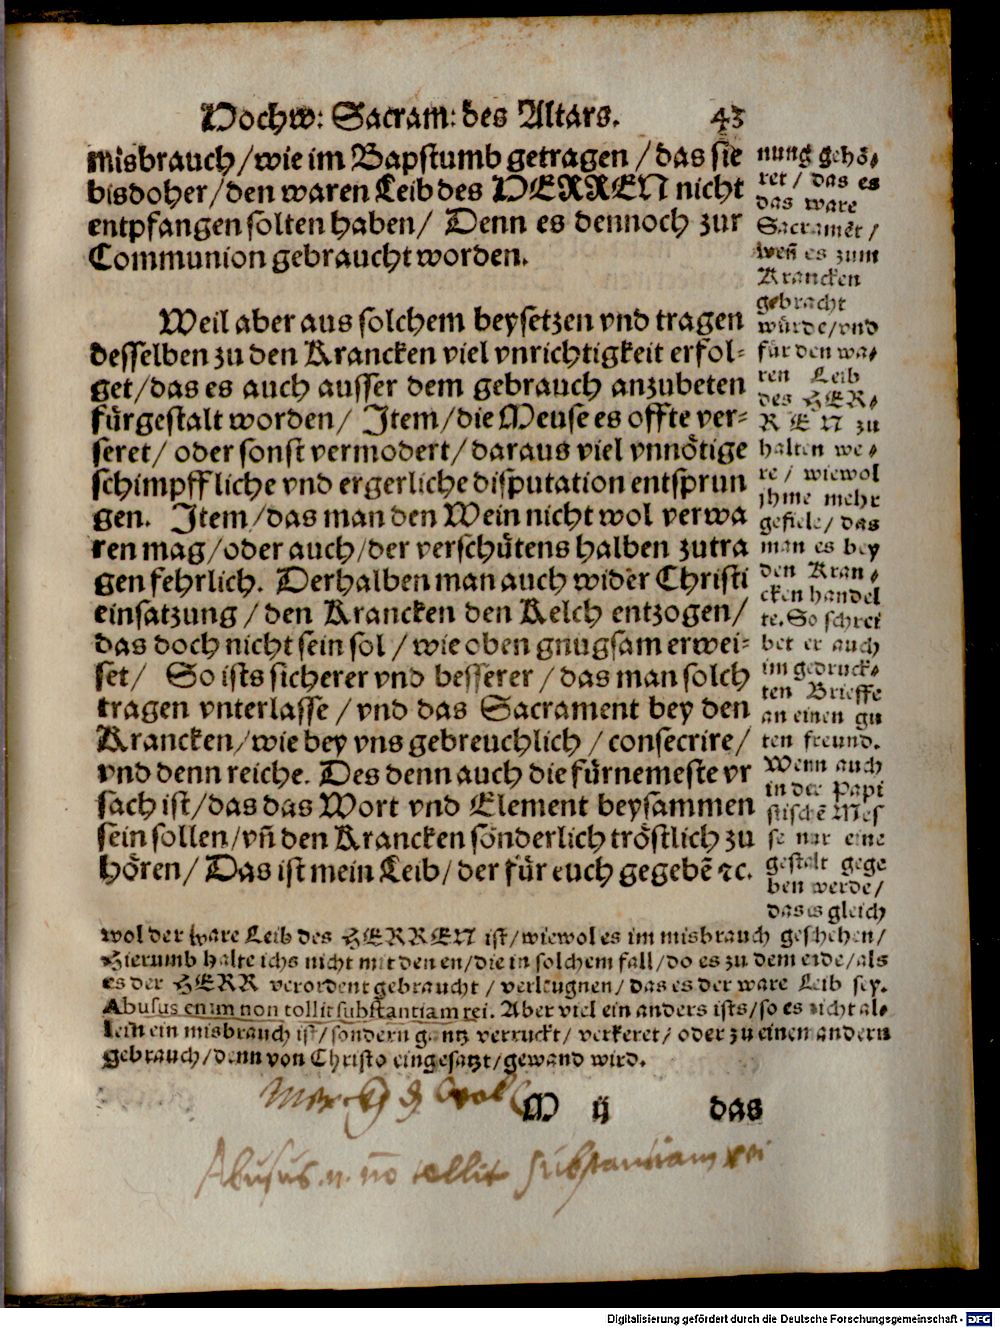 Hochw: Sacram: des Altars. 43
misbrauch/wie im Bapstumb getragen/das sie
bisdoher/den waren Leib des HERREN nicht
entpfangen solten haben/ Denn es dennoch zur
Communion gebraucht worden.
Weil aber aus solchem beysetzen vnd tragen
desselben zu den Krancken viel vnrichtigkeit erfol-
get/das es auch ausser dem gebrauch anzubeten
fürgestalt worden/ Item/die Meuse es offte ver-
seret/ oder sonst vermodert/daraus viel vnnötige
schimpffliche vnd ergerliche disputation entsprun
gen. Item/das man den Wein nicht wol verwa
ren mag/oder auch/der verschütens halben zutra
gen fehrlich. Derhalben man auch wider Christi
einsatzung/den Krancken den Kelch entzogen/
das doch nicht sein sol/wie oben gnugsam erwei-
set/ So ists sicherer vnd besserer/das man solch
tragen vnterlasse/vnd das Sacrament bey den
Krancken/wie bey vns gebreuchlich/consecrire/
vnd denn reiche. Des denn auch die fürnemeste vr
sach ist/das das Wort vnd Element beysammen
sein sollen/vñ den Krancken sonderlich tröstlich zu
hören/ Das ist mein Leib/der für euch gegebẽ ꝛc.
nung gehö-
ret/ das es
das ware
Sacramẽt/
weñ es zum
Krancken
gebracht
würde/vnd
für den wa-
ren Leib
des HER-
REN zu
halten we-
re/ wiewol
jhme mehr
gefiele/das
man es bey
den Kran-
cken handel
te. So schrei
bet er auch
im gedruck-
ten Brieffe
an einen gu
ten freund.
Wenn auch
in der Papi
stischẽ Mes
se nur eine
gestalt gege
ben werde/
das es gleich
wol der ware Leib des HERREN ist/wiewol es im misbrauch geschehen/
Hierumb halte ichs nicht mit den en/die in solchem fall/do es zu dem ende/als
es der HERR verordent gebraucht/verleugnen/das es der ware Leib sey.
Abusus enim non tollit substantiam rei. Aber viel ein anders ists/so es nicht al-
lein ein misbrauch ist/sondern gantz verruckt/verkeret/oder zu einen andern
gebrauch/denn von Christo eingesatzt/gewand wird.
M ij das
Abusus n. nō tollit substantiam rei